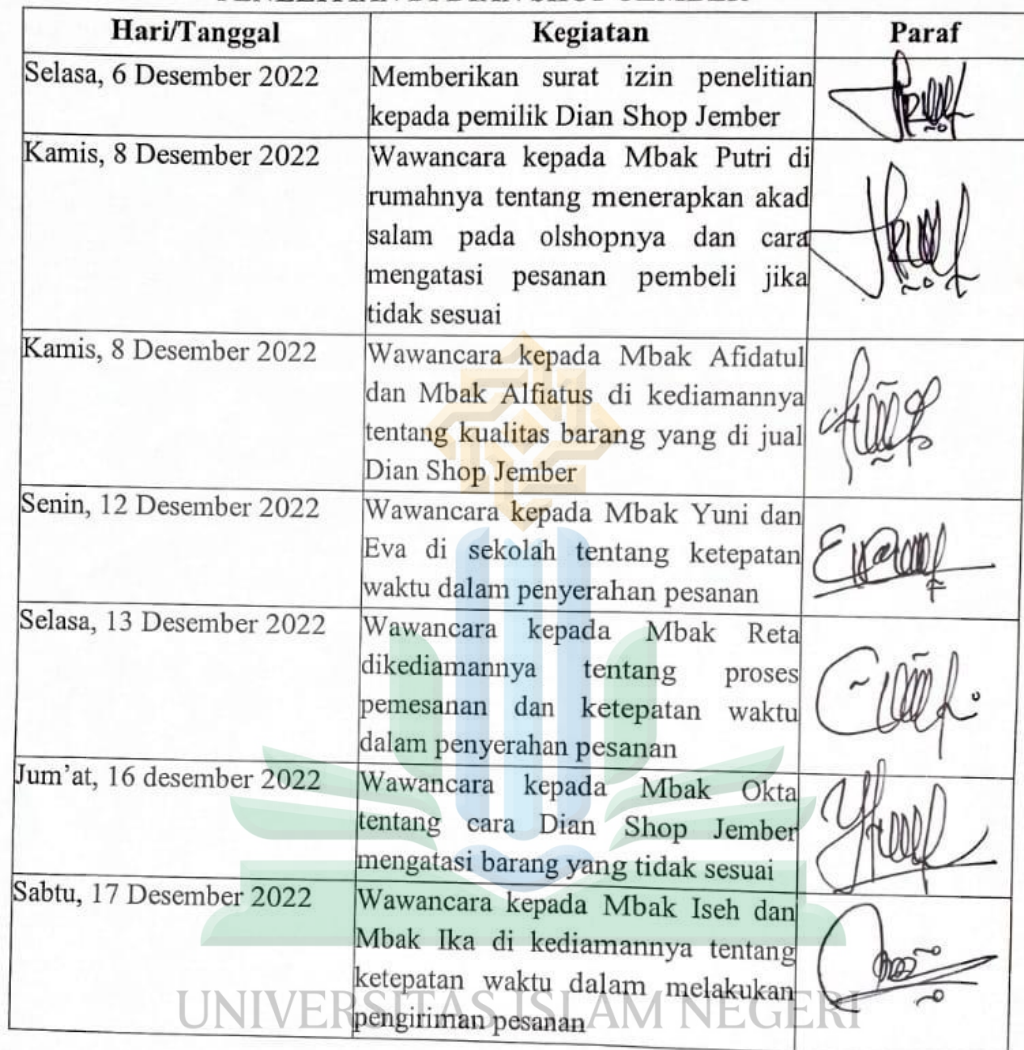 PENELITIAN DI DIAN SHOP JEMBER
Hari/Tanggal Kegiatan Paraf
Selasa, 6 Desember 2022 Memberikan surat izin penelitian
kepada pemilik Dian Shop Jember
Kamis, 8 Desember 2022 Wawancara kepada Mbak Putri di
rumahnya tentang menerapkan akad
salam pada olshopnya dan cara
mengatasi pesanan pembeli jika
tidak sesuai
Kamis, 8 Desember 2022 Wawancara kepada Mbak Afidatul
dan Mbak Alfiatus di kediamannya
tentang kualitas barang yang di jual
Dian Shop Jember
Senin, 12 Desember 2022 Wawancara kepada Mbak Yuni dan
Eva di sekolah tentang ketepatan
waktu dalam penyerahan pesanan
Selasa, 13 Desember 2022 Wawancara kepada Mbak Reta
dikediamannya tentang proses
pemesanan dan ketepatan waktu
dalam penyerahan pesanan
Jum'at, 16 desember 2022 Wawancara kepada Mbak Okta
tentang cara Dian Shop Jember
mengatasi barang yang tidak sesuai
Sabtu, 17 Desember 2022 Wawancara kepada Mbak Iseh dan
Mbak Ika di kediamannya tentang
ketepatan waktu dalam melakukan
pengiriman pesanan
UNIVERSITAS ISLAM NEGERI